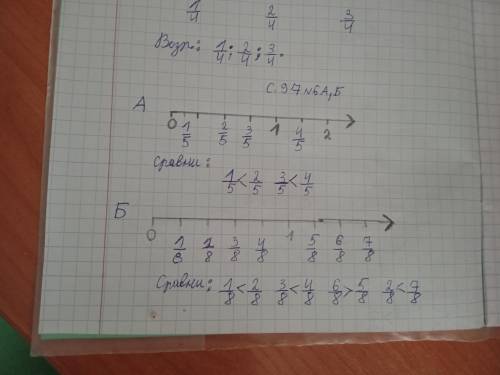 1/4 2/4 3/4
Возр: 1/4; 2/4; 3/4.
С.97 №6 А, Б
А
0 1/5 2/5 3/5 1 4/5 2
Сравни:
1/5 < 2/5 3/5 < 4/5
Б
0 1/8 2/8 3/8 4/8 1 5/8 6/8 7/8
Сравни: 1/8 < 2/8 3/8 < 4/8 6/8 > 5/8 2/8 < 7/8